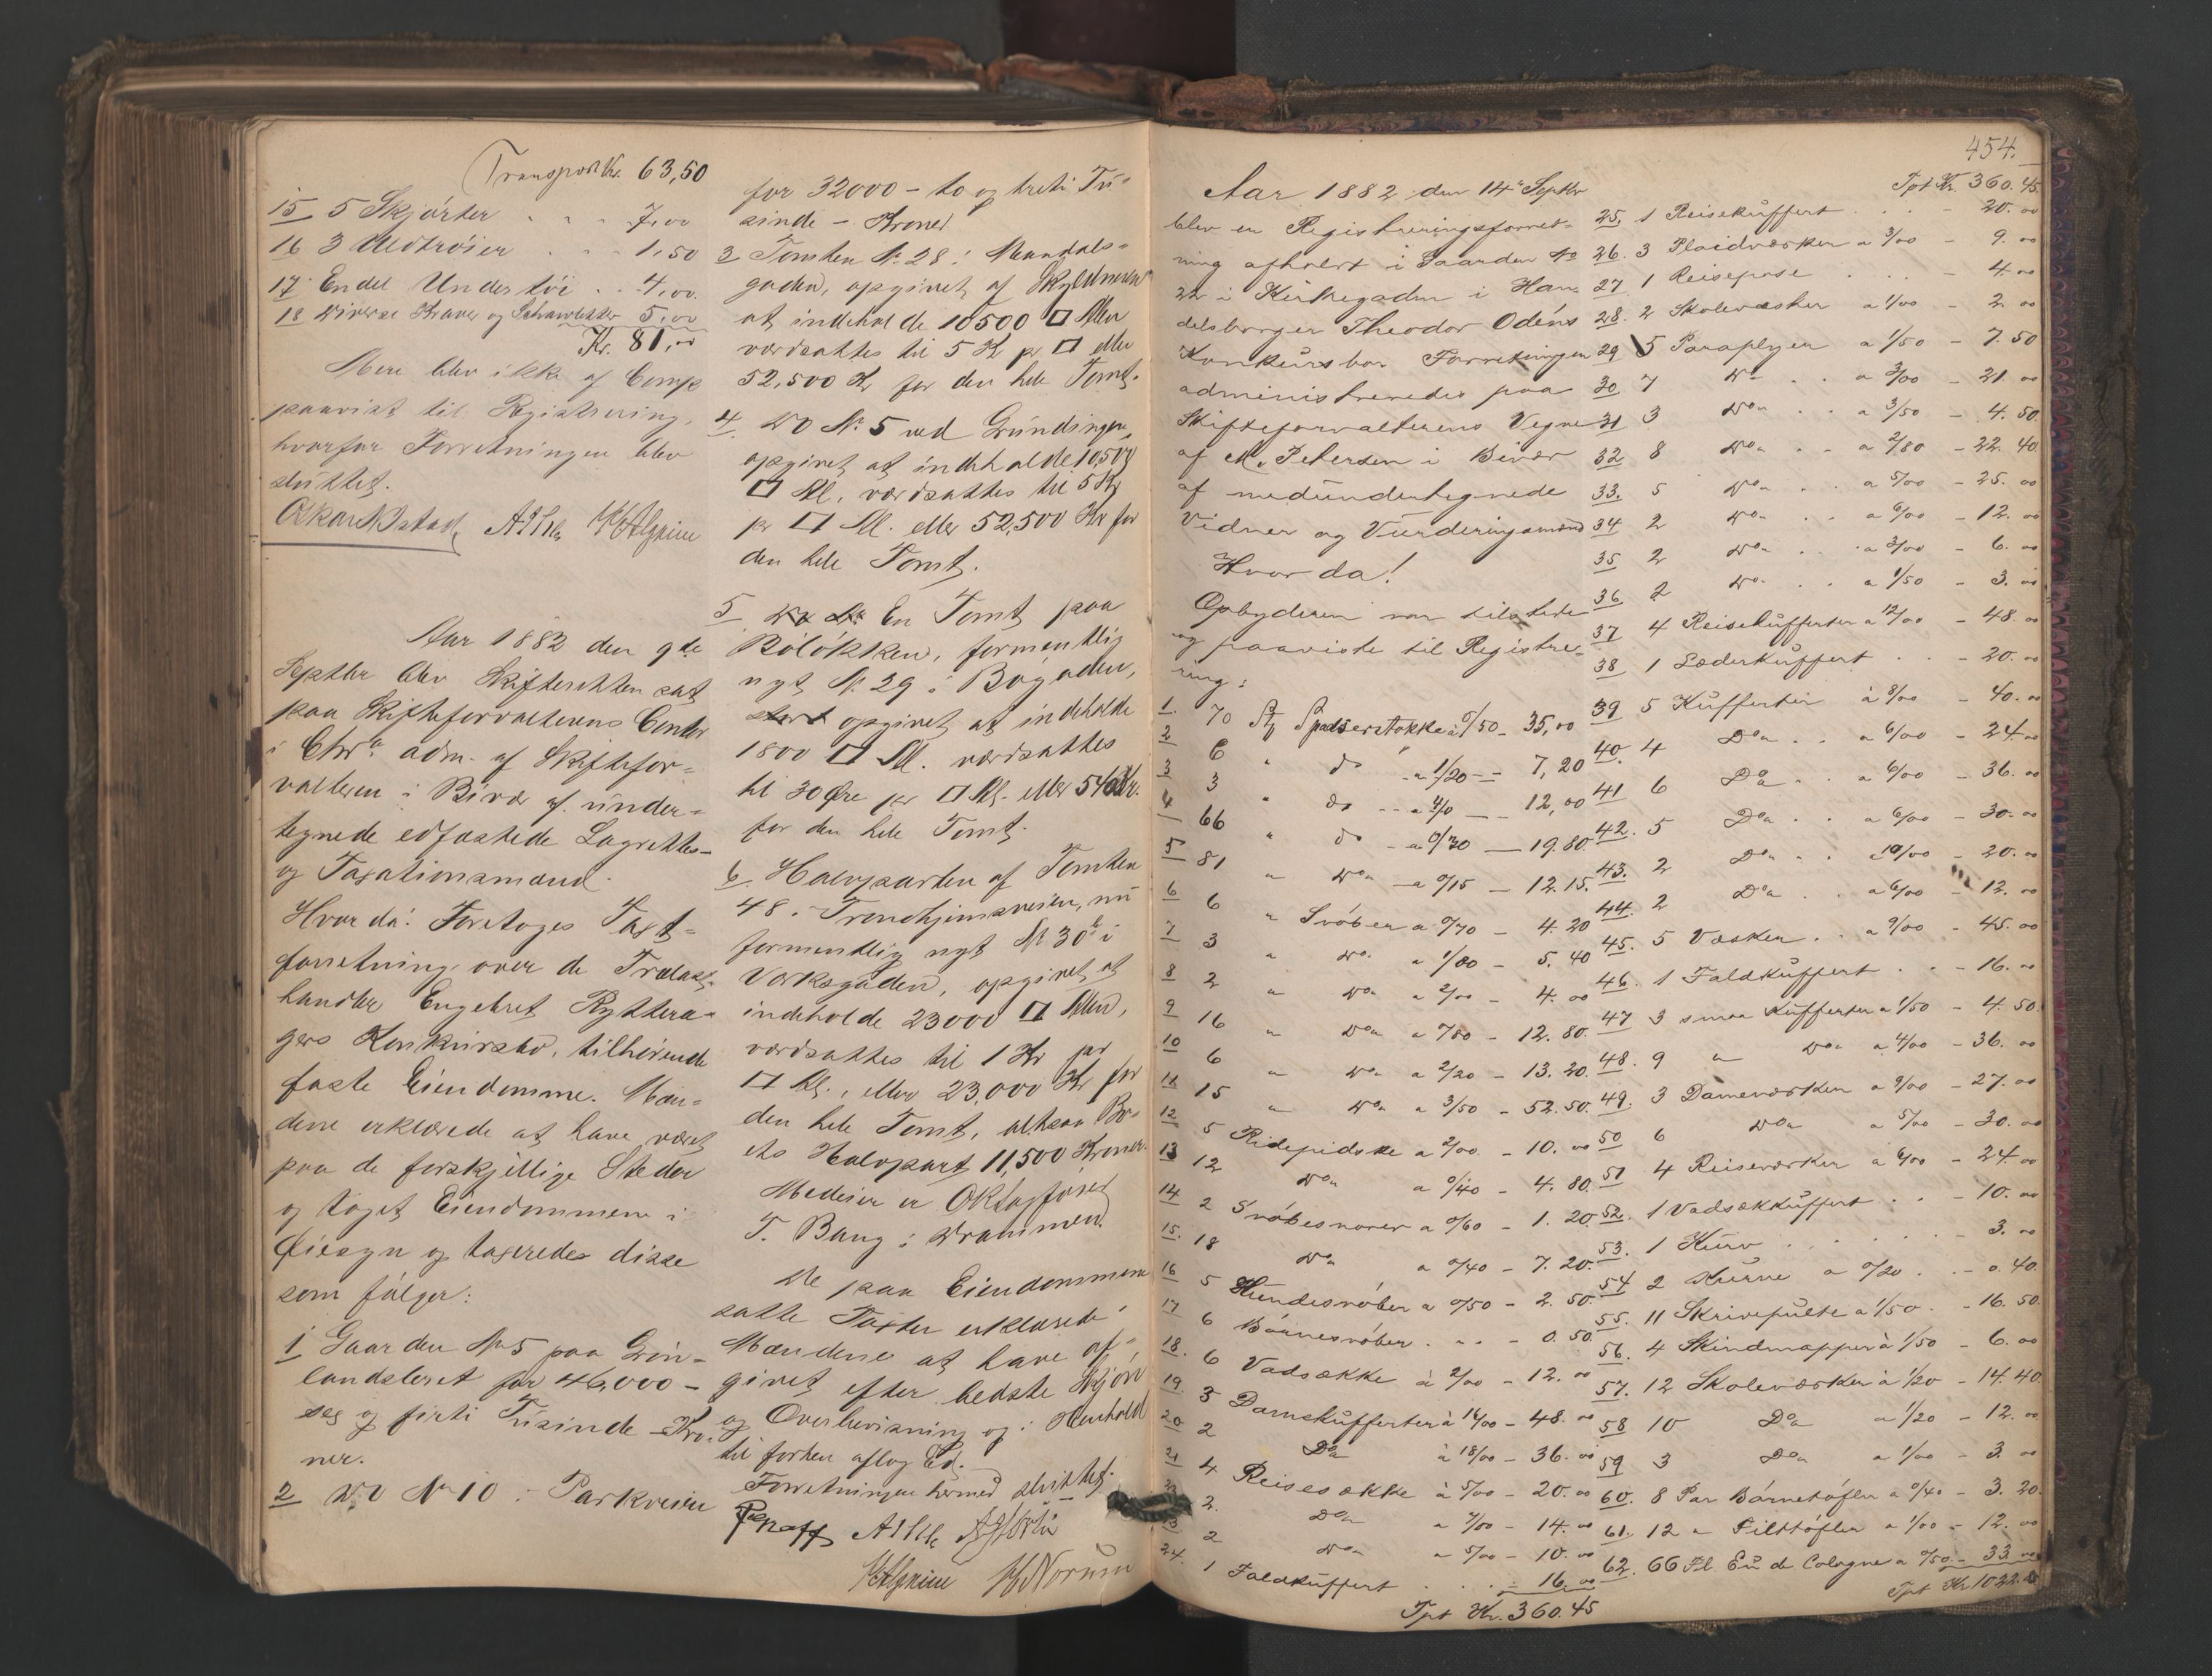 Transport Kr. 63,50
15 5 Skjorter . . . 7,00
16 3 Uldtröier . . . 1,50
17. Endel Undertöi . . 4,00.
18 Diverse Kraver og 5,00
Kr. 81,00
Mere blev ikke af Comp
paavist til Registrering,
hvorfor Forretningen blev
sluttet.
Aar 1882 den 9de
Septbr blev Skifteretten sat
paa Skifteforvalterens Contor
i Chra adm. af Skiftefor-
valteren i Bivær af under-
tegnede edfæstede Lagrettes-
og Taxationsmænd.
Hvor da: Foretoges Taxt-
forretning over de Trælast-
handler Engebret Ryttera-
gers Konkursbo, tilhörende
faste Eiendomme. Mæn-
dene erklærede at have været
paa de forskjellige Steder
og taget Eiendommene i
Öiesyn og taxeredes disse
som fölger:
1 Gaarden No 5 paa Grön-
landsleret for 46,000 -
sex og firti Tusinde - Kro-
ner.
2 Do No 10 i Parkveien
for 32000 - to og treti Tu-
sinde - Kroner
3 Tomten No 28 i Mandals-
gaden, opgivet af Skyldneren
at indeholde 10500 □ Alen
værdsattes til 5 Kr pr □ eller
52,500 Kr for den hele Tomt.
4. Do No 5 ved Gründingen,
opgivet at indeholde 10,500
□ Al. værdsattes til 5 Kr
pr □ Al. eller 52,500 Kr for
den hele Tomt.
5 En Tomt paa
Rölökken, formentlig
nyt No 29 i Bogaden,
opgivet at indeholde
1800 □ Al. værdsattes
til 30 Øre pr □ Al. eller 540 Kr.
for den hele Tomt.
6. Halvparten af Tomten
48 i Trondhjemsveien, nu
formentlig nyt No 30b i
Værksgaden, opgivet at
indeholde 23000 □ Alen,
værdsattes til 1 Kr pr
□ Al., eller 23,000 Kr for
den hele Tomt, altsaa Bo-
ets Halvpart 11,500 Kroner.
Medeier er
T. Bang i Drammen.
De paa Eiendommene
satte Taxter erklærede
Mændene at have af-
givet efter bedste Skjön
og Overbevisning og i Henhold
til forhen aflagt Ed.
Forretningen hermed sluttet.
H Norum
454.
Aar 1882 den 14de Septbr
blev en Registreringsforret-
ning afholdt i Gaarden No
22 i Kirkegaden i Han-
delsborger Theodor Odéns
Konkursbo. Forretningen
administreredes paa
Skifteforvalterens Vegne
af M. Petersen i Bivær
af medundertegnede
Vidner og Vurderingsmænd
Hvor da!
Opbyderen var tilstede
og paaviste til Registre-
ring:
1. 70 St Spadserstokke à 0/50 - 35,00
2 6 " do " a 1/20 - 7,20
3 3 " do - - a 4/0 - 12,00
4 66 " do - a 0/30 - 19.80.
5 81 " Doa - a 0/15 - 12.15.
6 6 " Svöber a 0/70 - 4.20
7 3 " Do. a 1/80 - 5.40
8 2 " Doa a 2/00 - 4.00
9 16 " Doa a 0/80 - 12.80.
10 6 " Doa a 2/20 - 13.20.
11 15 " Doa a 3/50 - 52.50.
12 5 Ridepidske a 2/00 - 10.00
13 12 Doa a 0/40 - 4.80
14 2 Svöbesnorer a 0/60 - 1.20
15. 18 Doa a 0/40 - 7.20.
16 5 Hundesvöber a 0/50 - 2.50.
17 6 Börnesvöber . . . - 0.50.
18. 6 Vadsække à 2/00 - 12.00
19. 3 Damekufferter à 16/00 - 48.00
20 2 Doa à 18/00 - 36.00
21 4 Reisesække à 5/00 - 20.00
22 2. Doa a 7/00 - 14.00
23 2 Doa a 5/00 - 10.00
24. 1 Faldkuffert . . . - 16.00
Tpt Kr. 360.45
Tpt Kr. 360.45
25. 1 Reisekuffert . . . - 20.00
26. 3 Plaidværsker a 3/00 - 9.00
27 1 Reisepose . . . - 4.00
28. 2 Skolevæsker a 1/00 - 2.00
29 5 Paraplyer a 1/50 - 7.50
30 7 Do . . a 3/00 - 21.00
31 3 Doa . . a 3/50 - 4.50
32 8 Doa . . a 2/80 - 22.40
33. 5 Doa . . a 5/00 - 25.00
34 2 Doa . . a 6/00 - 12.00
35 2 Doa . . a 3/00 - 6.00
36 2 Do . . a 1/50 - 3.00
37 4 Reisekufferter a 12/00 - 48.00
38 1 Læderkuffert . . - 20.00
39 5 Kufferter à 8/00 - 40.00
40. 4 Doa . . a 6/00 - 24.00
41 6 Doa . . a 6/00 - 36.00
42. 5 Doa . . a 6/00 - 30.00
43. 2 Doa . . a 10/00 - 20.00
44. 2 Doa a 6/00 - 12.00
45. 5 Væsker . . a 9/00 - 45.00
46. 1 Faldkuffert . . - 16.00
47 3 smaa Kufferter a 1/50 - 4.50
48. 9 " Doa a 4/00 - 36.00
49. 3 Dameværsker a 9/00 - 27.00
50 6 Doa a 5/00 - 30.00
51 4 Reiseværsker a 6/00 - 24.00
52. 1 Vadsækkuffert . . - 10.00
53. 1 Kurv . . . . - 3.00
54 2 Kurve a 0/20 . - 0.40
55. 11 Skrivepulte a 1/50 - 16.50
56. 4 Skindmapper à 1/50 - 6.00
57. 12 Skoleværsker à 1/20 - 14.40
58 10 Doa a 1/20 - 12.00
59 3 Doa a 1/00 - 3.00
60. 8 Par Börnetöfler a 0/40 - 3.20
61. 12 " Filttöfler a 1/00 - 12.00
62. 66 Fl Eu de Cologne a 0/50 - 33.00
Tpt Kr 1022.